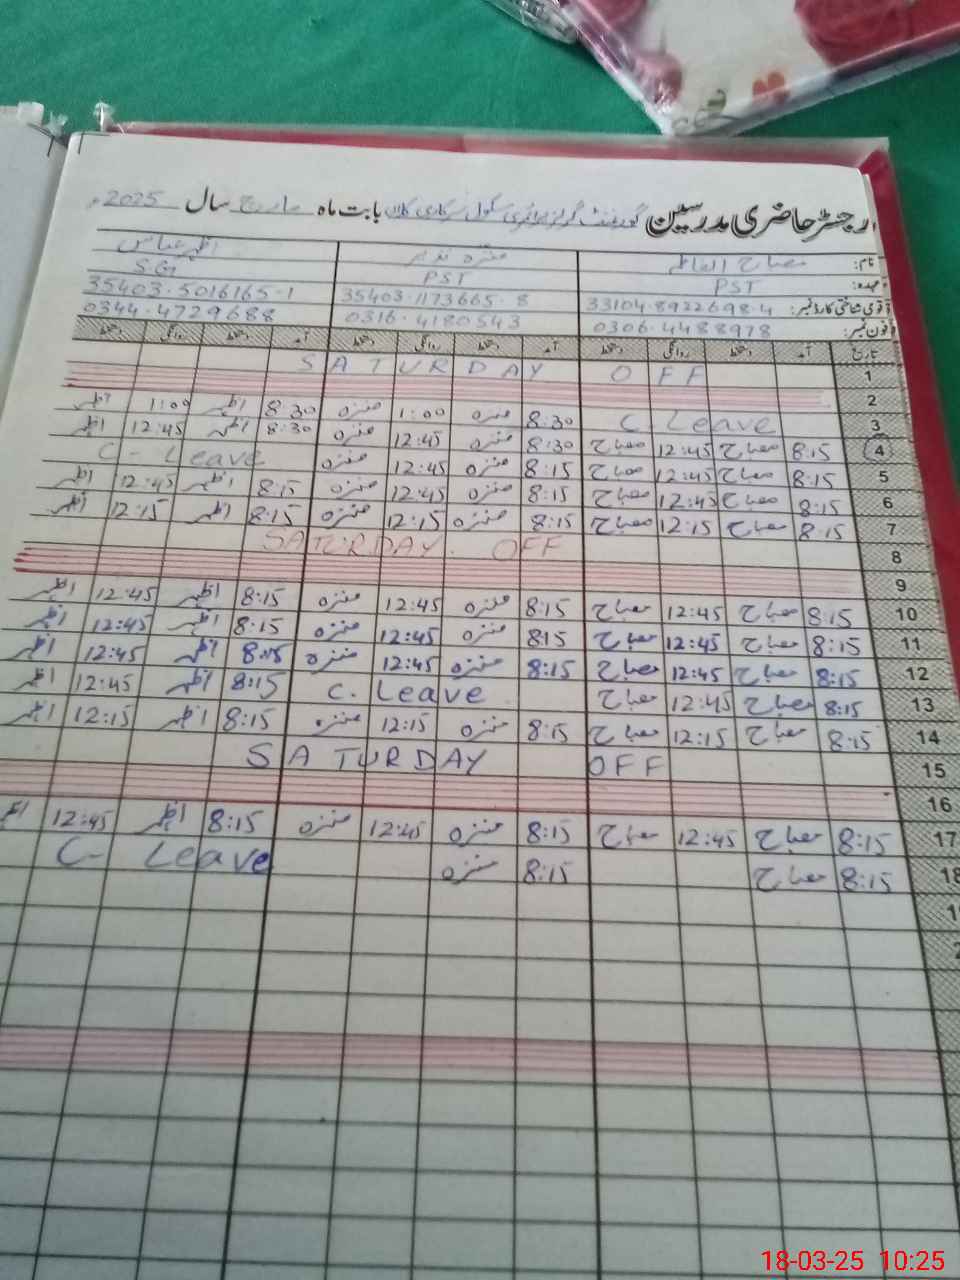 رجسٹر حاضری مدرسین گورنمنٹ گرلز پرائمری سکول سرکاری کلاں بابت ماہ مارچ سال 2025ء
نام: مصباح الفاطمہ منزہ نذیر اظہر عباس
عہدہ: PST PST S.G
قومی شناختی کارڈ نمبر: 33104-8922698-4 35403-1173665-8 35403-5016165-1
فون نمبر: 0306-4488978 0316-4180543 0344-4729688
تاریخ آمد دستخط روانگی دستخط آمد دستخط روانگی دستخط آمد دستخط روانگی دستخط
1 SATURDAY OFF
2
3 C Leave 8:30 منزہ 1:00 منزہ 8:30 اظہر 1:00 اظہر
4 8:15 مصباح 12:45 مصباح 8:30 منزہ 12:45 منزہ 8:30 اظہر 12:45 اظہر
5 8:15 مصباح 12:45 مصباح 8:15 منزہ 12:45 منزہ C - Leave
6 8:15 مصباح 12:45 مصباح 8:15 منزہ 12:45 منزہ 8:15 اظہر 12:45 اظہر
7 8:15 مصباح 12:15 مصباح 8:15 منزہ 12:15 منزہ 8:15 اظہر 12:15 اظہر
8 SATURDAY. OFF
9
10 8:15 مصباح 12:45 مصباح 8:15 منزہ 12:45 منزہ 8:15 اظہر 12:45 اظہر
11 8:15 مصباح 12:45 مصباح 8:15 منزہ 12:45 منزہ 8:15 اظہر 12:45 اظہر
12 8:15 مصباح 12:45 مصباح 8:15 منزہ 12:45 منزہ 8:15 اظہر 12:45 اظہر
13 8:15 مصباح 12:45 مصباح C. Leave 8:15 اظہر 12:45 اظہر
14 8:15 مصباح 12:15 مصباح 8:15 منزہ 12:15 منزہ 8:15 اظہر 12:15 اظہر
15 SATURDAY OFF
16
17 8:15 مصباح 12:45 مصباح 8:15 منزہ 12:45 منزہ 8:15 اظہر 12:45 اظہر
18 8:15 مصباح 8:15 منزہ C- Leave
18-03-25 10:25